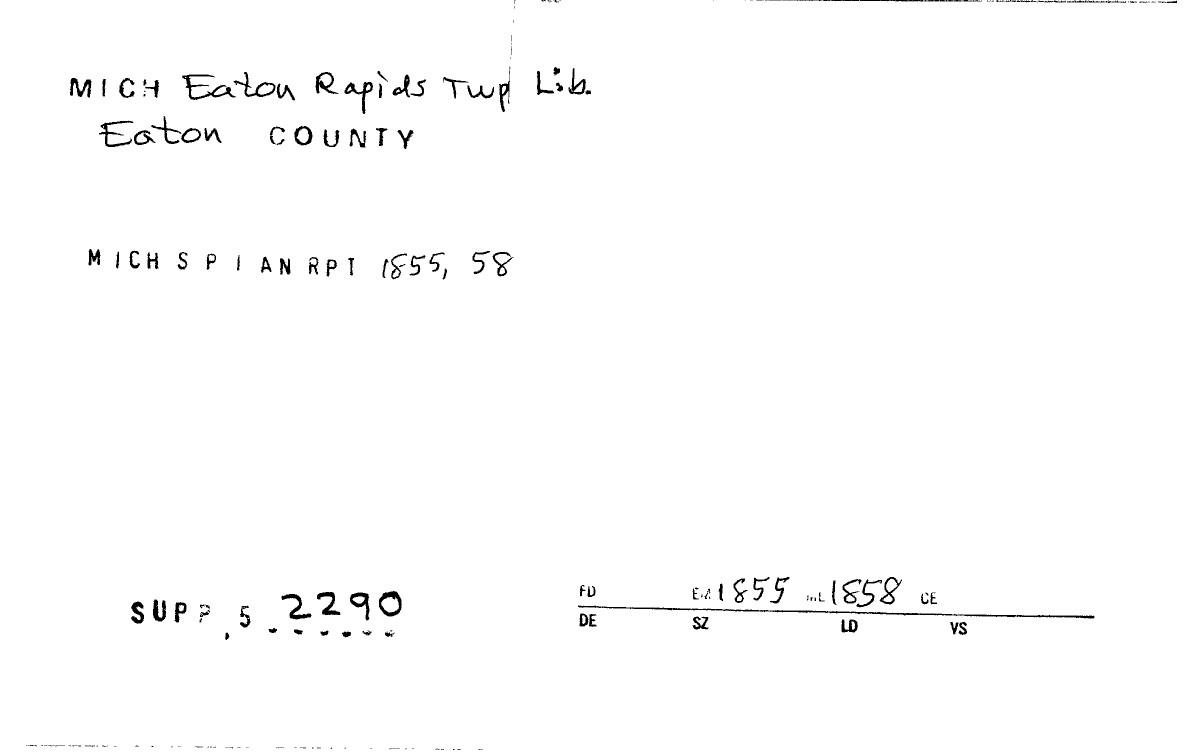 MICH Eaton Rapids Twp Lib.
Eaton COUNTY
MICH S P I AN RPT 1855, 58
SUPP, 5 2290
FD 1855 1858 CE
DE SZ LD VS